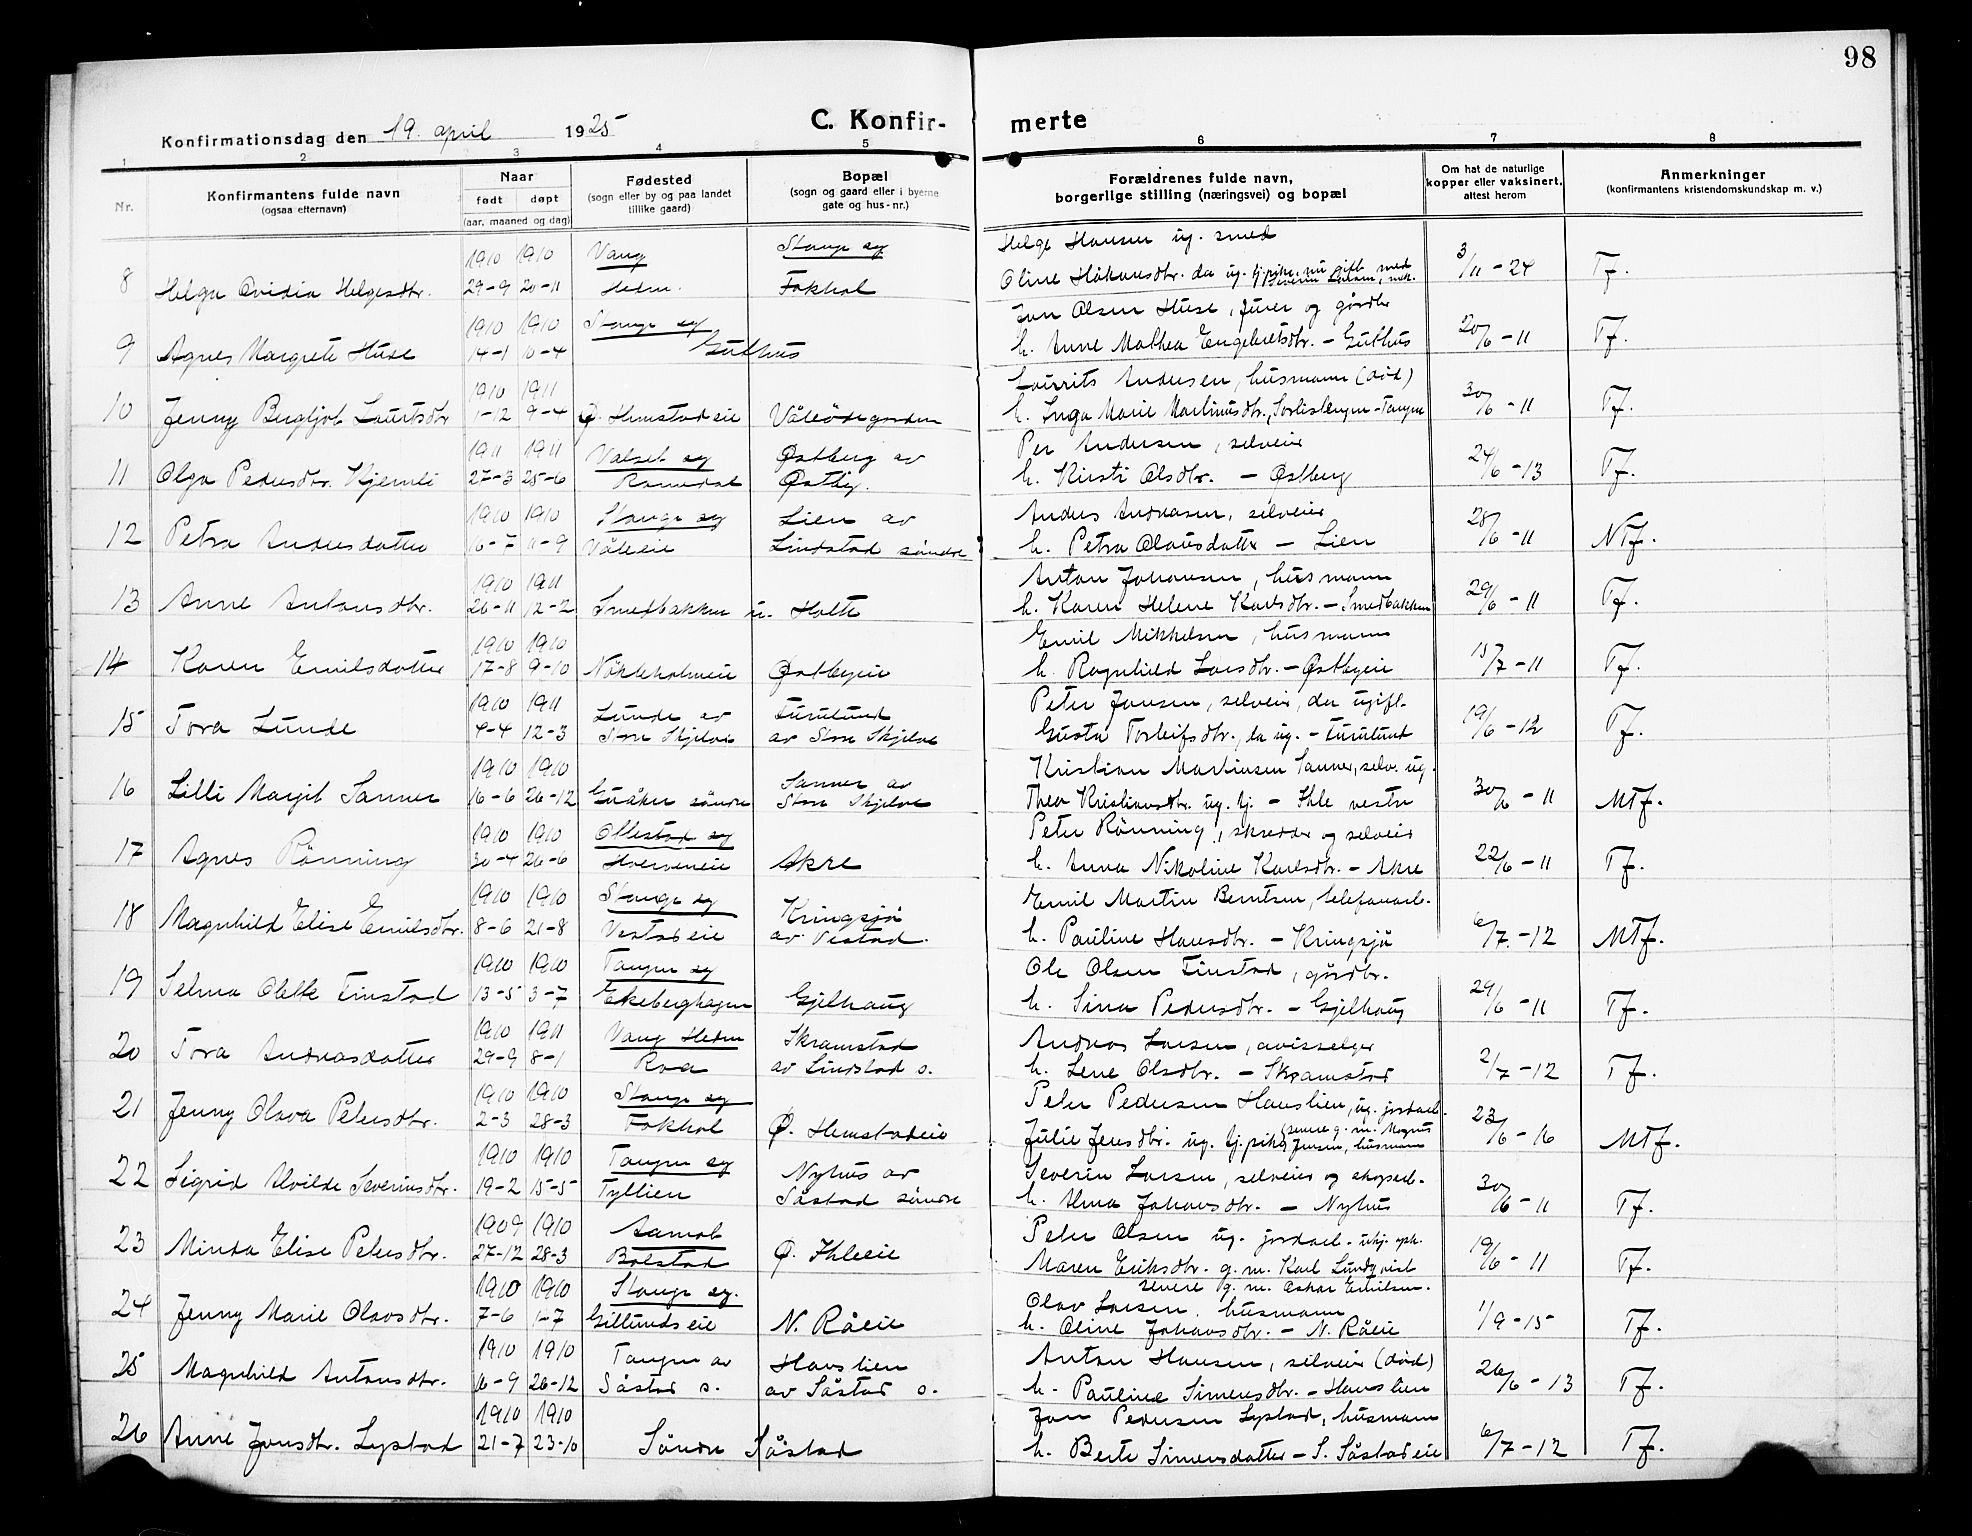 98
Konfirmationsdag den 19. april 1925
C. Konfirmerte
1 2 3 4 5 6 7 8
Nr.
Konfirmantens fulde navn
(ogsaa efternavn)
Naar
født døpt
(aar, maaned og dag)
Fødested
(sogn eller by og paa landet
tillike gaard)
Bopæl
(sogn og gaard eller i byerne
gate og hus-nr.)
Forældrenes fulde navn,
borgerlige stilling (næringsvei) og bopæl
Om hat de naturlige
kopper eller vaksinert,
attest herom
Anmerkninger
(konfirmantens kristendomskundskap m. v.)
1910 1910 Vang Stange sg Helge Hansen ug. smed
8 Helga Ovidia Helgesdtr. 29-9 20-11 Hedm. Fokhol Oline Håkonsdtr. da ug. tj.pike, nu gift med 3/11-24 Tf.
1910 1910 Stange sg Jon Olsen Huse, furer og gårdbr
9 Agnes Margrete Huse 14-1 10-4 Guthus h. Anne Mathea Engebretsdtr. - Guthus 20/6-11 Tf.
1910 1911 Laurits Andersen, husmann (død)
10 Jenny Bergljot Lauritsdtr 1-12 9-4 Ø. Hemstadeie Våleödegarden h. Inga Marie Martinusdtr., - Tangen 30/6-11 Tf.
1911 1911 Valset sg Østberg av Per Andersen, selveier
11 Olga Pedersdtr. Kjernli 27-3 25-6 Romedal Østby. h. Kirsti Olsdtr. - Østberg 24/6-13 Tf.
1910 1910 Stange sg Lien av Anders Andreasen, selveier
12 Petra Andersdatter 16-7 11-9 Våleeie Lindstad søndre h. Petra Olausdatter - Lien 28/6-11 NTf.
1910 1911 Anton Johansen, husmann
13 Anne Antonsdtr. 26-11 12-2 Smedbakken u. Holte h. Karen Helene Karlsdtr. - Smedbakken 29/6-11 Tf.
1910 1910 Emil Mikkelsen, husmann
14 Karen Emilsdatter 17-8 9-10 Nökleholmeie Østbyeie h. Ragnhild Larsdtr. - Østbyeie 15/7-11 Tf.
1910 1911 Lunde av Furulund Peter Jonsen, selveier, da ugift
15 Tora Lunde 4-4 12-3 Store Skjelve av Store Skjelve Gusta Torleifsdtr., da ug. - Furulund 19/6-12 Tf.
1910 1910 Sanner av Kristian Martinsen Sanner, selv. ug.
16 Lilli Margit Sanner 16-6 26-12 Guåker søndre Store Skjelve Thea Kristiansdtr. ug. tj. - Ihle vestre 30/6-11 MTf.
1910 1910 Ottestad sg Peter Rönning, skredder og selveier
17 Agnes Rönning 30-4 26-6 Hverveneie Akre h. Anna Nikoline Karlsdtr. - Akre 22/6-11 Tf.
1910 1910 Stange sg Kringsjå Emil Martin Berntsen, telefonarb.
18 Magnhild Elise Emilsdtr. 8-6 21-8 Vestadeie av Vestad. h. Pauline Hansdtr. - Kringsjå 6/7-12 MTf.
1910 1910 Tangen sg Ole Olsen Finstad, gårdbr.
19 Selma Olette Finstad 13-5 3-7 Ekeberghagen Gjelhaug h. Sina Pedersdtr. - Gjelhaug 29/6-11 Tf.
1910 1911 Vang Hedm Skramstad Andreas Larsen, avisselger
20 Tora Andreasdatter 29-9 8-1 Roa av Lindstad s. h. Lene Olsdtr. - Skramstad 2/7-12 Tf.
1910 1910 Stange sg Peter Pedersen Hanslien, ug. jordarb.
21 Jenny Olava Petersdtr. 2-3 28-3 Fokhol Ø. Hemstadeie Julie Jensdtr. ug. tj.pike, (senere g. m. Magnus Jensen, husmann 23/6-16 MTf.
1910 1910 Tangen sg Nyhus av Severin Larsen, selveier og skogsarb.
22 Sigrid Alvilde Severinsdtr. 19-2 15-5 Fyllien Såstad søndre h. Alma Johansdtr. - Nyhus 30/6-11 Tf.
1909 1910 Aamot Peter Olsen ug. jordarb. - ubkj. oph.
23 Minda Elise Petersdtr. 27-12 28-3 Bolstad Ø. Ihleeie Maren Eriksdtr. g. m. Karl Lundqvist 19/6-11 Tf.
senere g. m. Oskar Emilsen.
1910 1910 Stange sg. Olav Larsen, husmann
24 Jenny Marie Olavsdtr. 7-6 1-7 Gillundseie N. Råeie h. Oline Johansdtr. - N. Råeie 1/9-15 Tf.
1910 1910 Tangen av Hanslien Anton Hansen, selveier (død)
25 Magnhild Antonsdtr. 16-9 26-12 Såstad s. av Såstad s. h. Pauline Simensdtr. - Hanslien 26/6-13 Tf.
1910 1910 Jon Pedersen Lystad, husmann
26 Anne Jonsdtr. Lystad 21-7 23-10 Söndre Såstad h. Berte Simensdatter - S. Såstadeie 6/7-12 Tf.